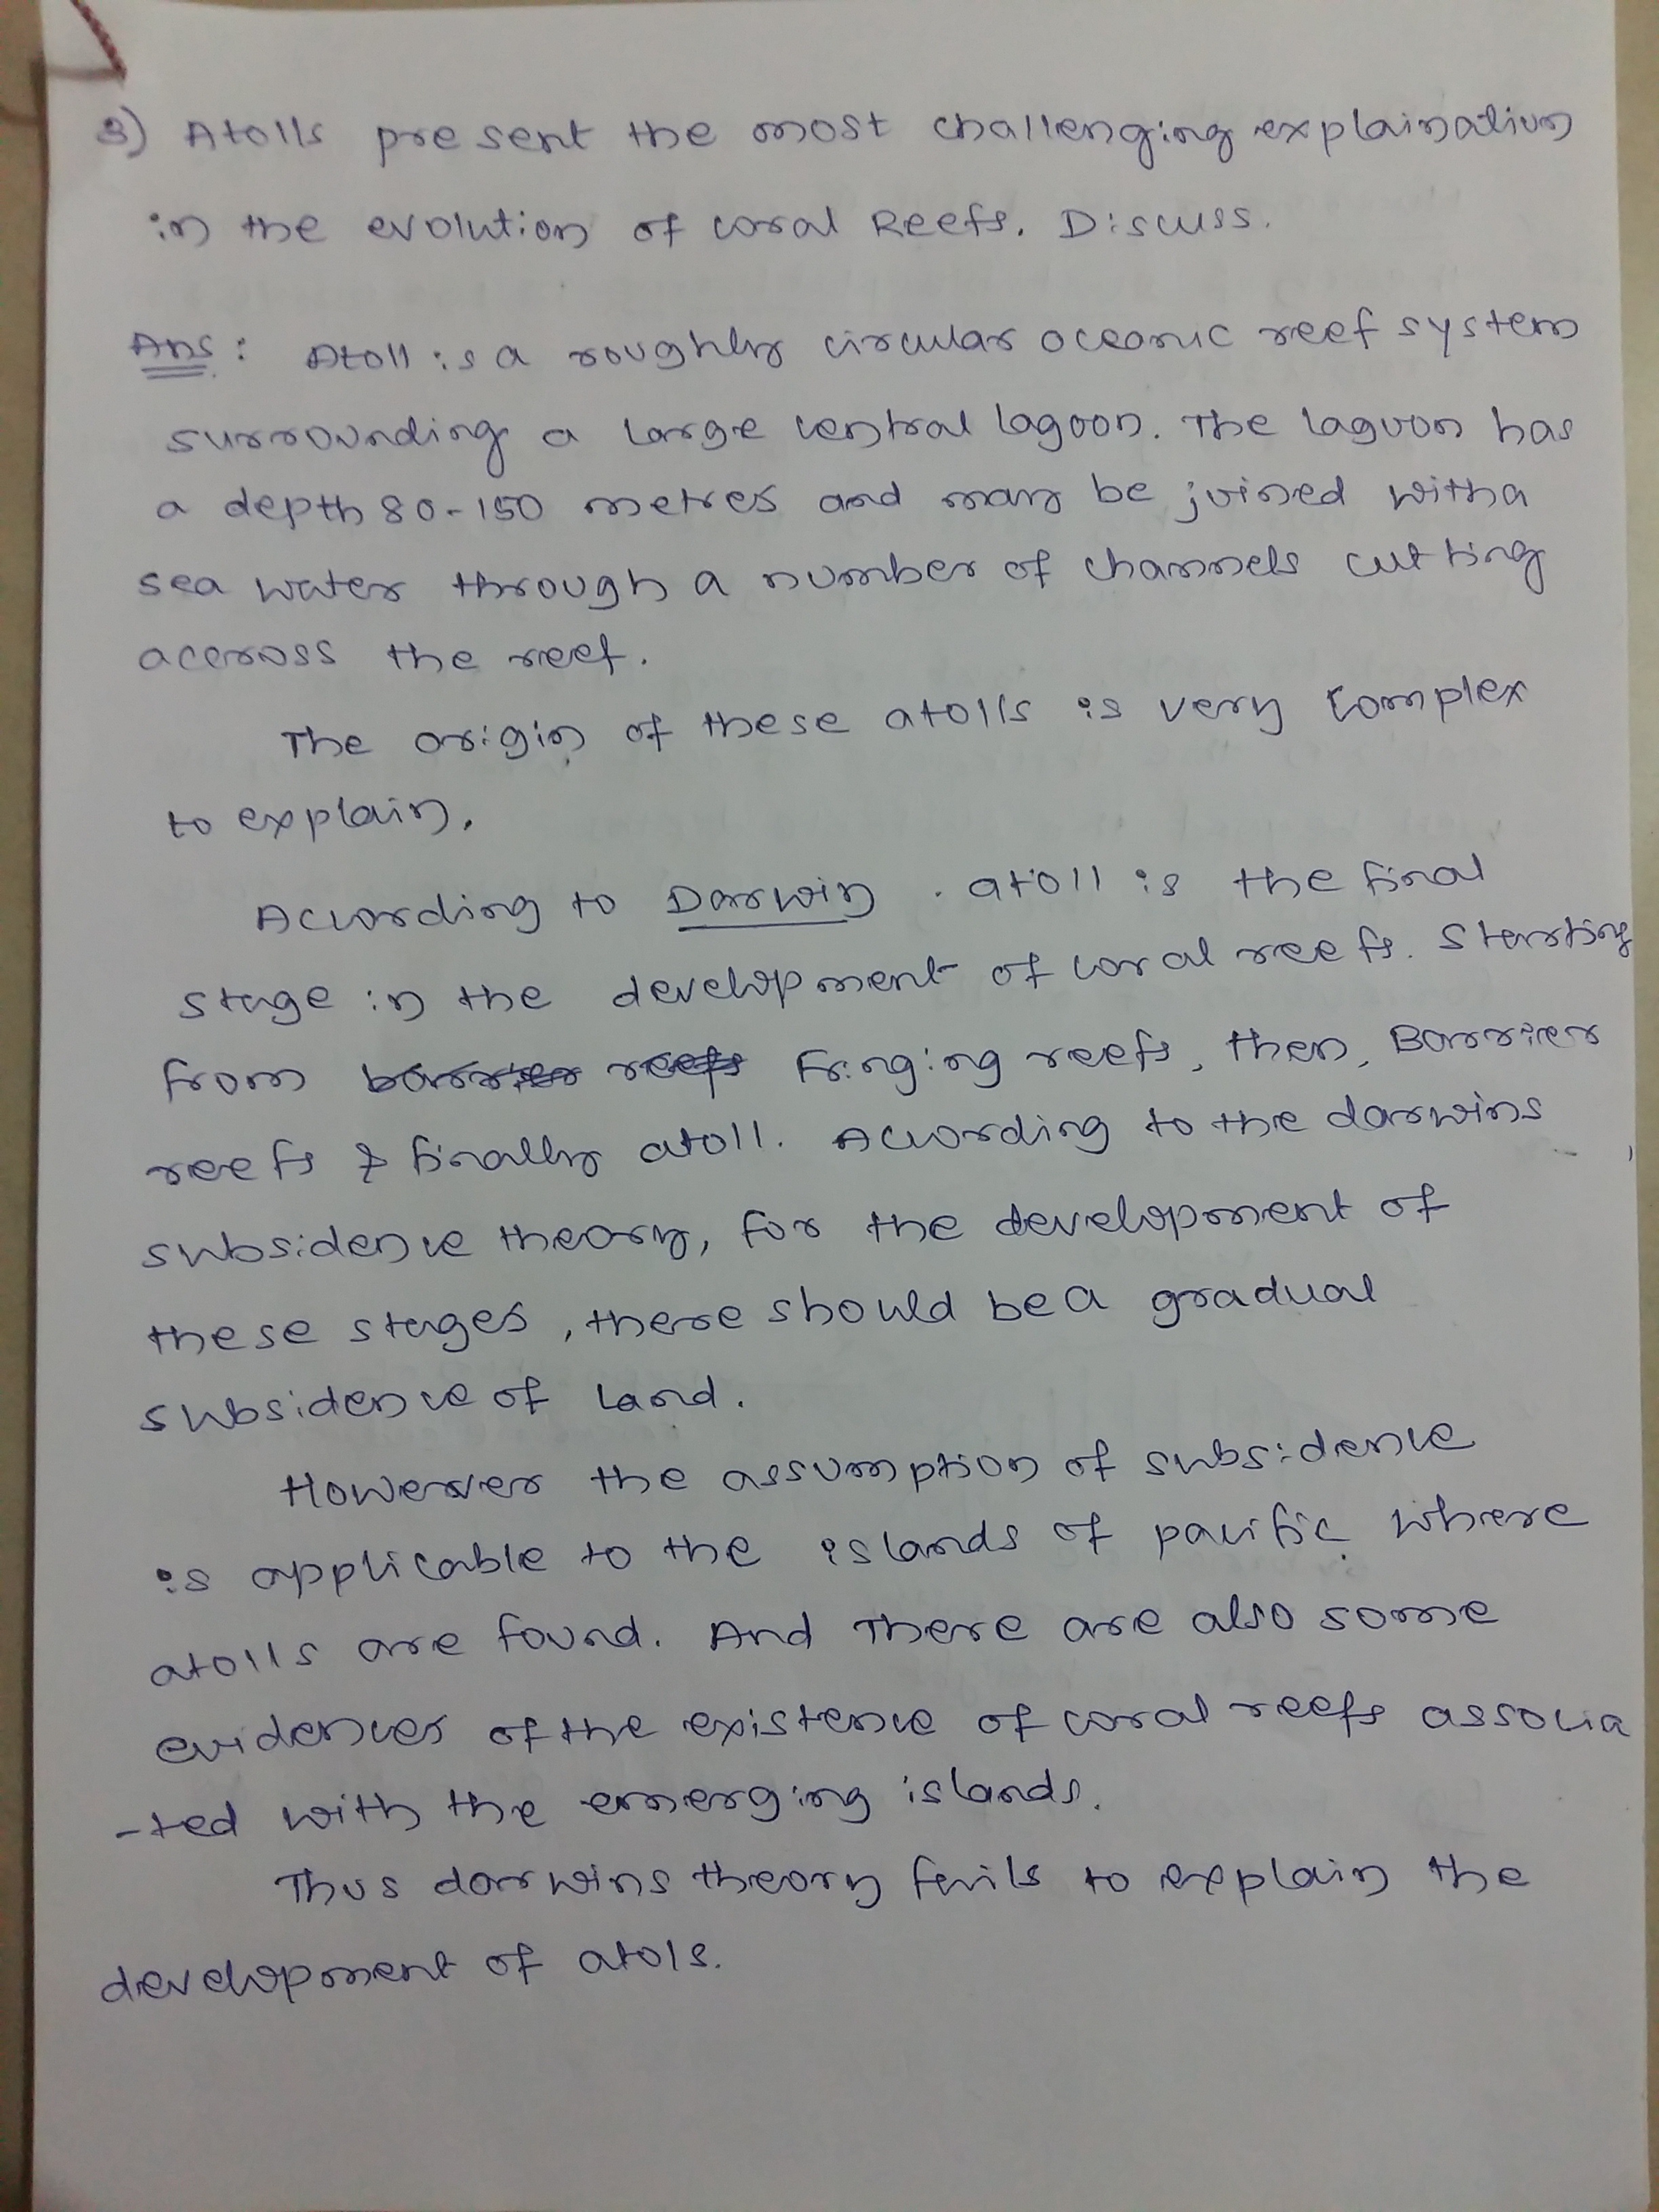 3) Atolls present the most challenging explaination
in the evolution of coral Reefs. Discuss.
Ans: Atoll is a roughly circular oceanic reef system
surrounding a large central lagoon. The lagoon has
a depth 80-150 metres and may be joined with a
sea water through a number of channels cutting
accross the reef.
The origin of these atolls is very complex
to explain.
According to Darwin. atoll is the final
stage in the development of coral reefs. Starting
from barrier reefs Fringing reefs, then, Barrier
reefs & finally atoll. According to the darwins
subsidence theory, for the development of
these stages, there should be a gradual
subsidence of Land.
However the assumption of subsidence
is applicable to the islands of pacific where
atolls are found. And There are also some
evidences of the existence of coral reefs associa
-ted with the emerging islands.
Thus darwins theory fails to explain the
development of atols.